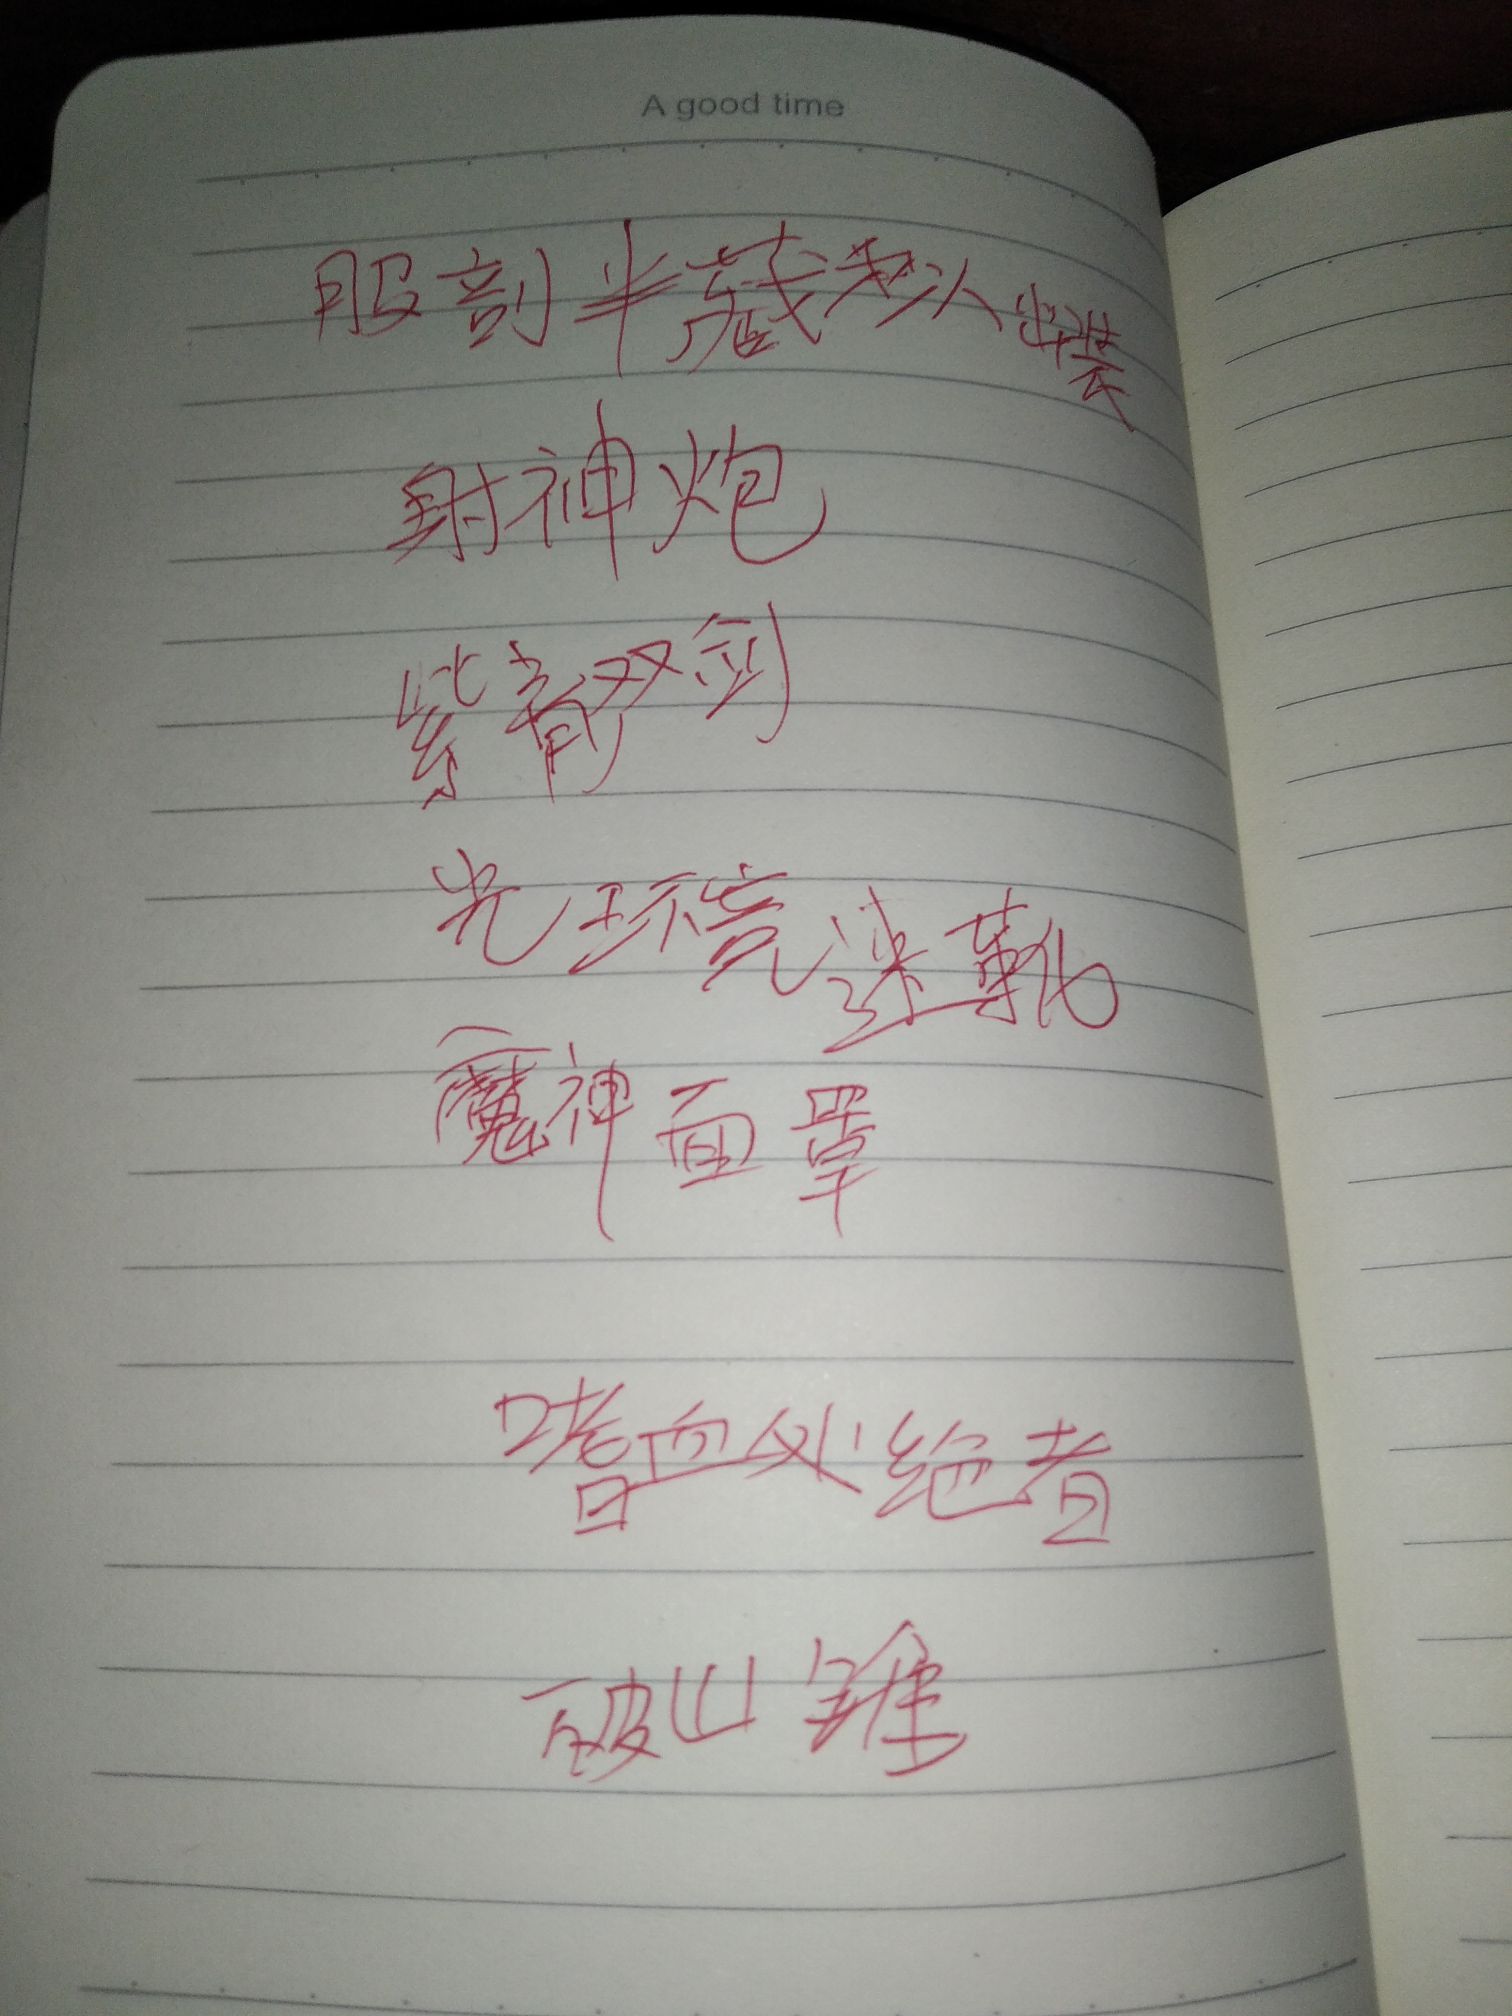 A good time
服剖半藏老人出装
封神炮
紫青双剑
光环竞速靴
魔神面罩
嗜血处绝者
破山锥